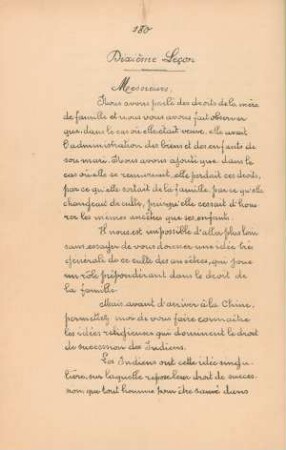 180
Dixième Leçon
Messieurs,
Nous avons parlé des droits de la mère
de famille et nous vous avons fait observer
que, dans le cas où elle était veuve, elle avait
l'administration des biens et des enfants de
son mari. Nous avons ajouté que dans le
cas où elle se remariait, elle perdait ces droits,
par ce qu'elle sortait de la famille, par ce qu'elle
changeait de culte, puisqu'elle cessait d'hono-
rer les mêmes ancêtres que ses enfants.
Il nous est impossible d'aller plus loin
sans essayer de vous donner une idée très
générale de ce culte des ancêtres, qui joue
un rôle prépondérant dans le droit de
la famille.
Mais avant d'arriver à la Chine,
permettez moi de vous faire connaître
les idées religieuses qui dominent le droit
de succession des Indiens.
Les Indiens ont cette idée singu-
lière, sur laquelle repose leur droit de succes-
sion, que tout homme pour être sauvé dans